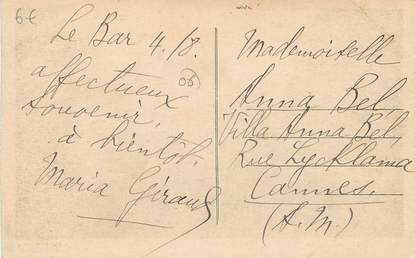 6€
Le Bar 4./8.
affectueux
souvenir,
à bientôt.
Maria Giraud
06
Mademoiselle
Anna Bel,
Villa Anna Bel,
Rue Lycklama
Cannes.
(A.M.)